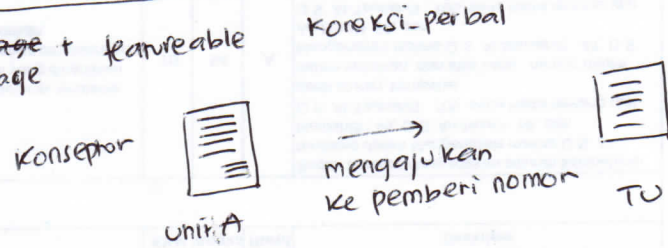 + featureable
age
Koreksi_perbal
Konseptor
unit A
mengajukan
ke pemberi nomor
TU